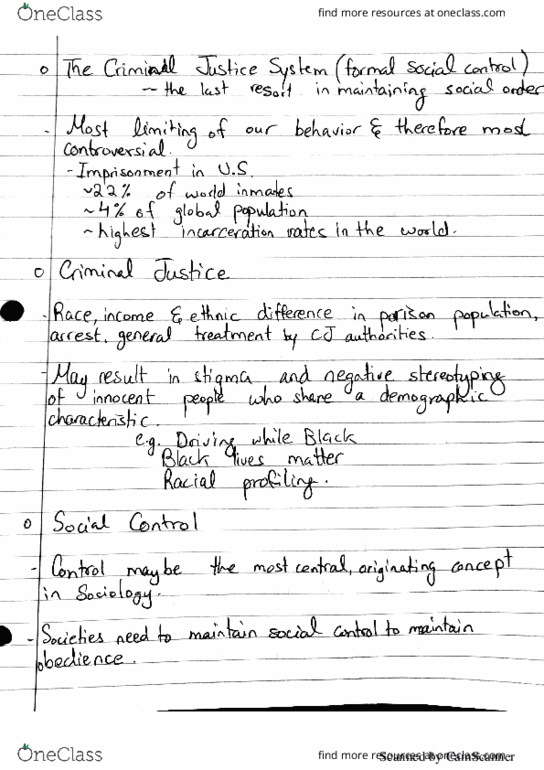 OneClass
find more resources at oneclass.com
o The Criminal Justice System (formal social control)
~ the last resort in maintaining social order
- Most limiting of our behavior & therefore most
controversial.
- Imprisonment in U.S.
~22% of world inmates
~4% of global population
~highest incarceration rates in the world.
o Criminal Justice
- Race, income & ethnic difference in porison population,
arrest, general treatment by CJ authorities.
- May result in stigma and negative stereotyping
of innocent people who share a demographic
characteristic.
e.g. Driving while Black
Black lives matter
Racial profiling.
o Social Control
- Control maybe the most central, originating concept
in Sociology.
- Societies need to maintain social control to maintain
obedience.
OneClass
find more resources at oneclass.com
Scanned by CamScanner